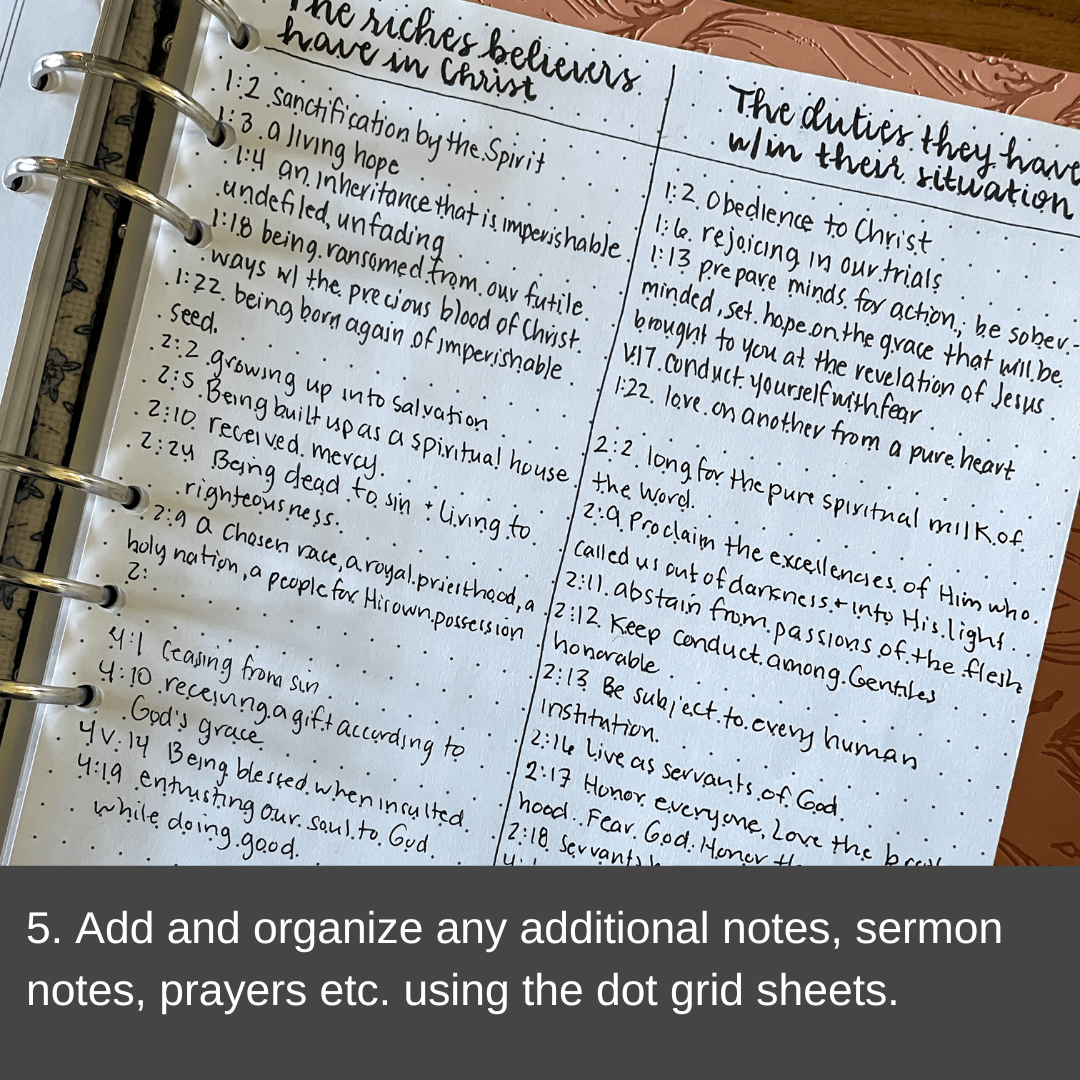 The riches believers
have in Christ
1:2 sanctification by the Spirit
1:3 a living hope
1:4 an inheritance that is imperishable
undefiled, unfading
1:18 being ransomed from our futile
ways w/ the precious blood of Christ.
1:22 being born again of imperishable
seed.
2:2 growing up into salvation
2:5 Being built up as a spiritual house
2:10 received mercy.
2:24 Being dead to sin + living to
righteousness.
2:9 a chosen race, a royal priesthood, a
holy nation, a people for His own possession
2:
4:1 Ceasing from sin
4:10 receiving a gift according to
God's grace
4 v.14 Being blessed when insulted
4:19 entrusting our soul to God
while doing good.
The duties they have
w/in their situation
1:2 Obedience to Christ
1:6 rejoicing in our trials
1:13 prepare minds for action, be sober-
minded, set hope on the grace that will be
brought to you at the revelation of Jesus
v.17 conduct yourself with fear
1:22 love on another from a pure heart
2:2 long for the pure spiritual milk of
the Word.
2:9 Proclaim the excellencies of Him who
called us out of darkness + into His light
2:11 abstain from passions of the flesh
2:12 Keep conduct among Gentiles
honorable
2:13 Be subject to every human
institution.
2:16 Live as servants of God
2:17 Honor everyone, Love the
hood. Fear God. Honor
2:18 servants
5. Add and organize any additional notes, sermon
notes, prayers etc. using the dot grid sheets.